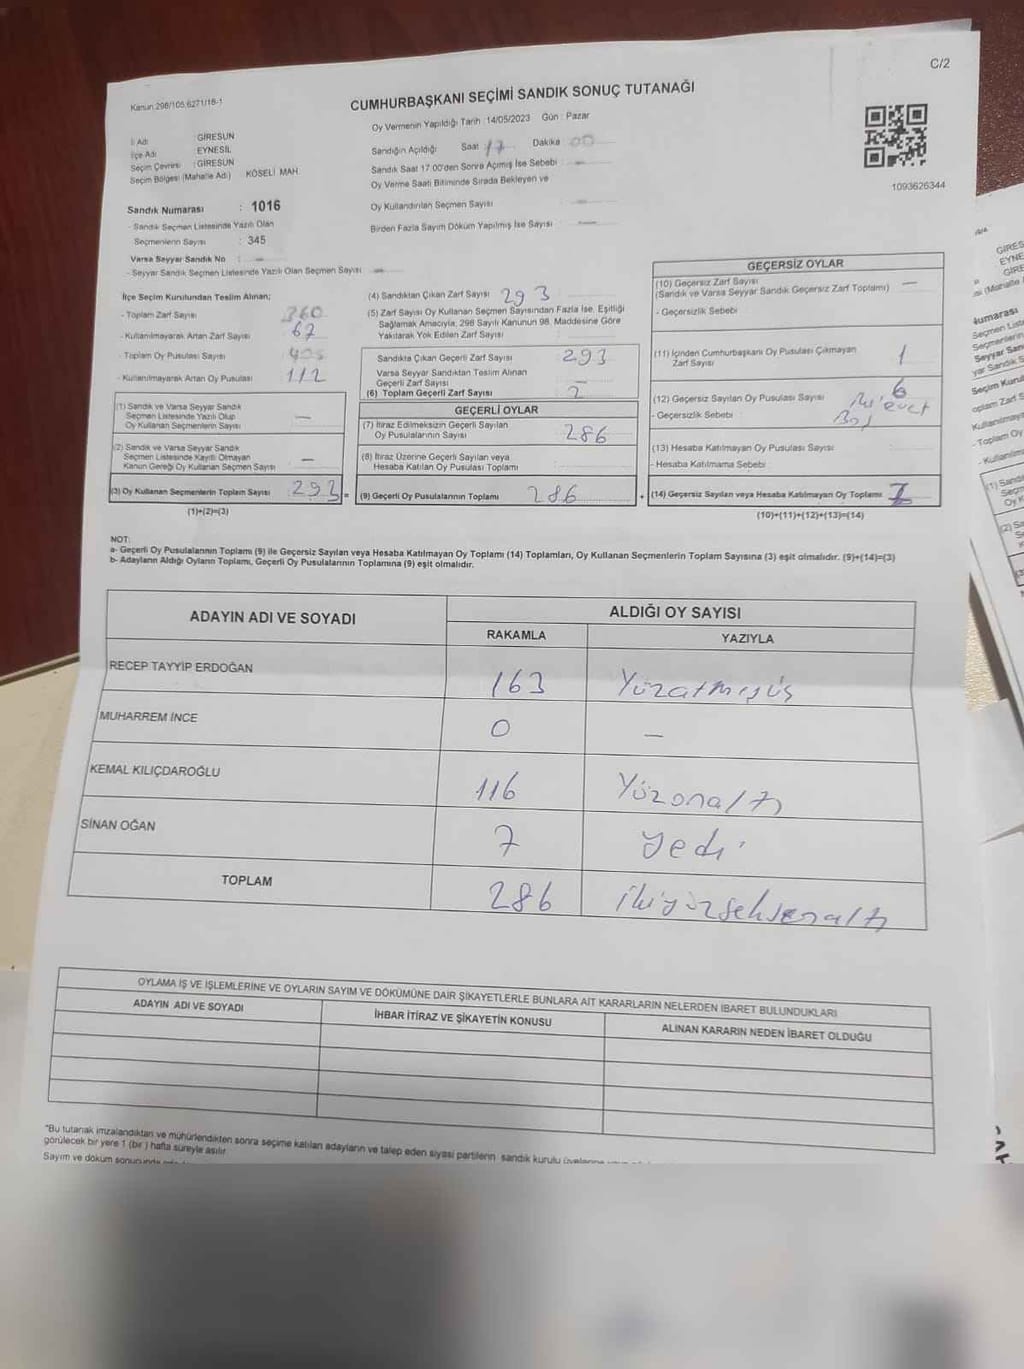 C/2
Kanun 298/105,6271/18-1
CUMHURBAŞKANI SEÇİMİ SANDIK SONUÇ TUTANAĞI
İl Adı : GİRESUN
İlçe Adı : EYNESİL
Seçim Çevresi : GİRESUN
Seçim Bölgesi (Mahalle Adı) KÖSELİ MAH.
Sandık Numarası : 1016
- Sandık Seçmen Listesinde Yazılı Olan
Seçmenlerin Sayısı : 345
Varsa Seyyar Sandık No : —
- Seyyar Sandık Seçmen Listesinde Yazılı Olan Seçmen Sayısı —
Oy Vermenin Yapıldığı Tarih :14/05/2023 Gün : Pazar
Sandığın Açıldığı Saat 17 Dakika 00
Sandık Saat 17.00'den Sonra Açılmış İse Sebebi : —
Oy Verme Saati Bitiminde Sırada Bekleyen ve
Oy Kullandırılan Seçmen Sayısı : —
Birden Fazla Sayım Döküm Yapılmış İse Sayısı : —
1093626344
İlçe Seçim Kurulundan Teslim Alınan;
- Toplam Zarf Sayısı 360
- Kullanılmayarak Artan Zarf Sayısı 67
- Toplam Oy Pusulası Sayısı 405
- Kullanılmayarak Artan Oy Pusulası 112
(1) Sandık ve Varsa Seyyar Sandık
Seçmen Listesinde Yazılı Olup
Oy Kullanan Seçmenlerin Sayısı —
(2) Sandık ve Varsa Seyyar Sandık
Seçmen Listesinde Kayıtlı Olmayan
Kanun Gereği Oy Kullanan Seçmen Sayısı —
(3) Oy Kullanan Seçmenlerin Toplam Sayısı 293 =
(1)+(2)=(3)
(4) Sandıktan Çıkan Zarf Sayısı 293
(5) Zarf Sayısı Oy Kullanan Seçmen Sayısından Fazla İse, Eşitliği
Sağlamak Amacıyla; 298 Sayılı Kanunun 98. Maddesine Göre
Yakılarak Yok Edilen Zarf Sayısı :
Sandıkta Çıkan Geçerli Zarf Sayısı 293
Varsa Seyyar Sandıktan Teslim Alınan
Geçerli Zarf Sayısı
(6) Toplam Geçerli Zarf Sayısı
GEÇERLİ OYLAR
(7) İtiraz Edilmeksizin Geçerli Sayılan
Oy Pusulalarının Sayısı 286
(8) İtiraz Üzerine Geçerli Sayılan veya
Hesaba Katılan Oy Pusulası Toplamı
(9) Geçerli Oy Pusulalarının Toplamı 286 +
GEÇERSİZ OYLAR
(10) Geçersiz Zarf Sayısı —
(Sandık ve Varsa Seyyar Sandık Geçersiz Zarf Toplamı)
- Geçersizlik Sebebi :
(11) İçinden Cumhurbaşkanı Oy Pusulası Çıkmayan
Zarf Sayısı 1
(12) Geçersiz Sayılan Oy Pusulası Sayısı 6
- Geçersizlik Sebebi : evet
(13) Hesaba Katılmayan Oy Pusulası Sayısı :
- Hesaba Katılmama Sebebi :
(14) Geçersiz Sayılan veya Hesaba Katılmayan Oy Toplamı 7
(10)+(11)+(12)+(13)=(14)
NOT:
a- Geçerli Oy Pusulalarının Toplamı (9) ile Geçersiz Sayılan veya Hesaba Katılmayan Oy Toplamı (14) Toplamları, Oy Kullanan Seçmenlerin Toplam Sayısına (3) eşit olmalıdır. (9)+(14)=(3)
b- Adayların Aldığı Oyların Toplamı, Geçerli Oy Pusulalarının Toplamına (9) eşit olmalıdır.
ADAYIN ADI VE SOYADI
ALDIĞI OY SAYISI
RAKAMLA YAZIYLA
RECEP TAYYİP ERDOĞAN 163 Yüzatmışüş
MUHARREM İNCE 0 —
KEMAL KILIÇDAROĞLU 116 Yüzonaltı
SİNAN OĞAN 7 yedi
TOPLAM 286 ikiyüzseksenaltı
OYLAMA İŞ VE İŞLEMLERİNE VE OYLARIN SAYIM VE DÖKÜMÜNE DAİR ŞİKAYETLERLE BUNLARA AİT KARARLARIN NELERDEN İBARET BULUNDUKLARI
ADAYIN ADI VE SOYADI İHBAR İTİRAZ VE ŞİKAYETİN KONUSU ALINAN KARARIN NEDEN İBARET OLDUĞU
"Bu tutanak imzalandıktan ve mühürlendikten sonra seçime katılan adayların ve talep eden siyasi partilerin sandık kurulu
görülecek bir yere 1 (bir ) hafta süreyle asılır.
Sayım ve döküm sonucunda